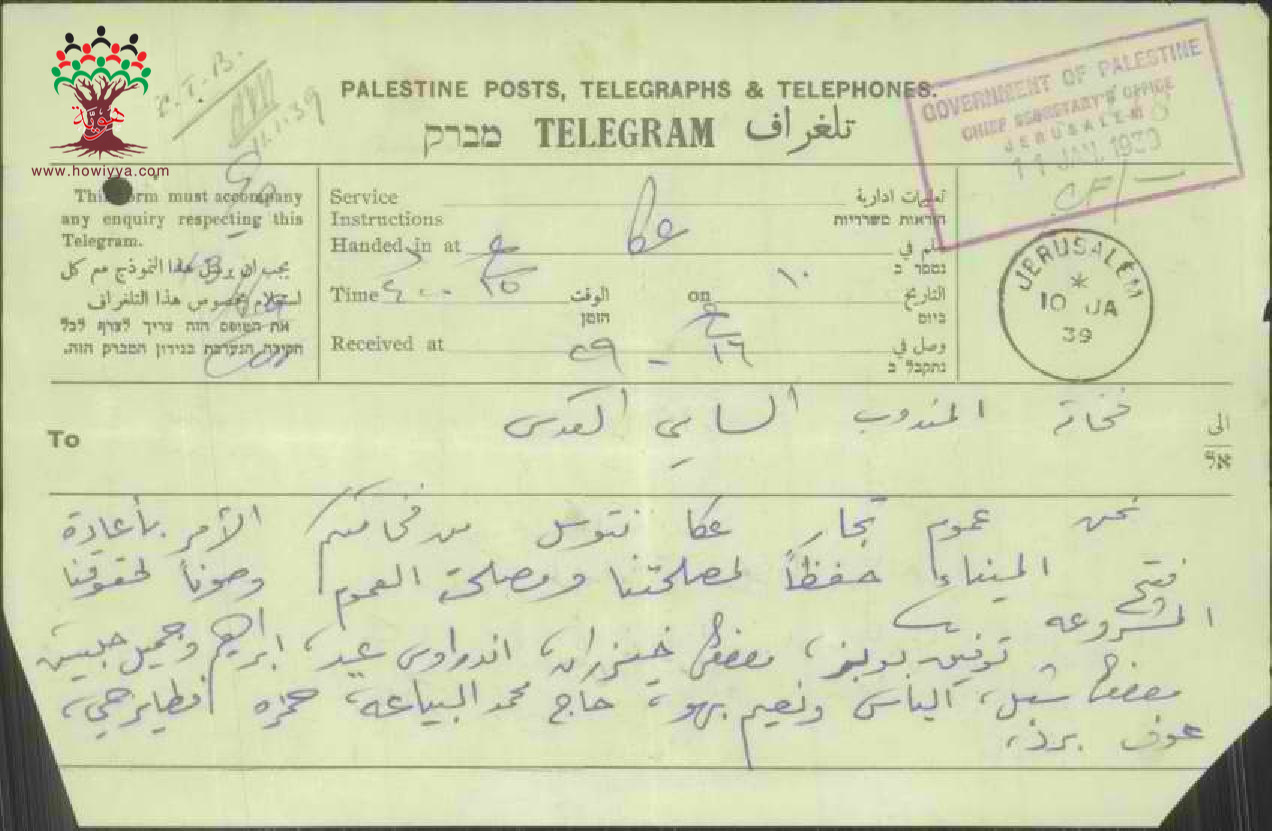 هوية
www.howiyya.com
PALESTINE POSTS, TELEGRAPHS & TELEPHONES.
מברק TELEGRAM تلغراف
GOVERNMENT OF PALESTINE
CHIEF SECRETARY'S OFFICE
JERUSALEM
11 JAN. 1939
11.1.39
This form must accompany
any enquiry respecting this
Telegram.
يجب ان يرسل هذا النموذج مع كل
استعلام بخصوص هذا التلغراف
את הטופס הזה צריך לצרף לכל
חקירה הנערכת בנידון המברק הזה.
Service تعليمات ادارية
Instructions הוראות משרדיות
Handed in at عكا سلم في
נמסר ב
Time الوقت on ١٠ التاريخ
הזמן ביום
Received at وصل في
נתקבל ב
JERUSALEM
10 JA
39
To فخامة المندوب السامي القدس الى
אל
نحن عموم تجار عكا نتوسل من فخامتكم الأمر بأعادة
فتح الميناء حفظاً لمصلحتنا ومصلحة العموم وصوناً لحقوقنا
المشروعه
توفيق، مصطفى خيزران، اندراوس عيد، ابراهيم وجميل
مصطفى شبل، الياس ونعيم، حاج محمد البياعه، حمزه افطايرجي،
عوف